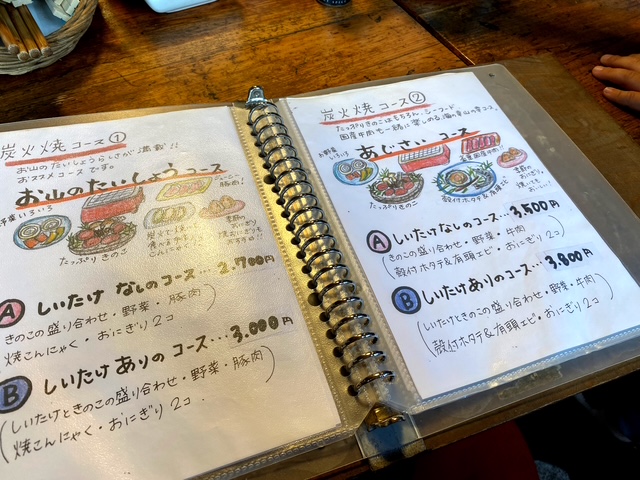 炭火焼コース①
お山のたいしょうらしさが満載!!
おススメコースです。
お山のたいしょうコース
野菜いろいろ
たっぷりきのこ
豚肉!
炭火で焼く
A しいたけ なしのコース…2.700円
(きのこの盛り合わせ・野菜・豚肉
焼こんにゃく・おにぎり2コ)
B しいたけ ありの コース…3.000円
(しいたけときのこの盛り合わせ・野菜・豚肉
焼こんにゃく・おにぎり2コ)
炭火焼コース②
たっぷりきのこはもちろん、シーフード、
国産牛肉も一緒に楽しめる、海の幸山の幸コース。
あじさいコース
お野菜いろいろ
たっぷりきのこ
殻付ホタテ&有頭エビ
A しいたけなしのコース…3,500円
(きのこの盛り合わせ・野菜・牛肉
殻付ホタテ&有頭エビ・おにぎり2コ)
B しいたけありのコース…3,800円
(しいたけときのこの盛り合わせ・野菜・牛肉
殻付ホタテ&有頭エビ・おにぎり2コ)